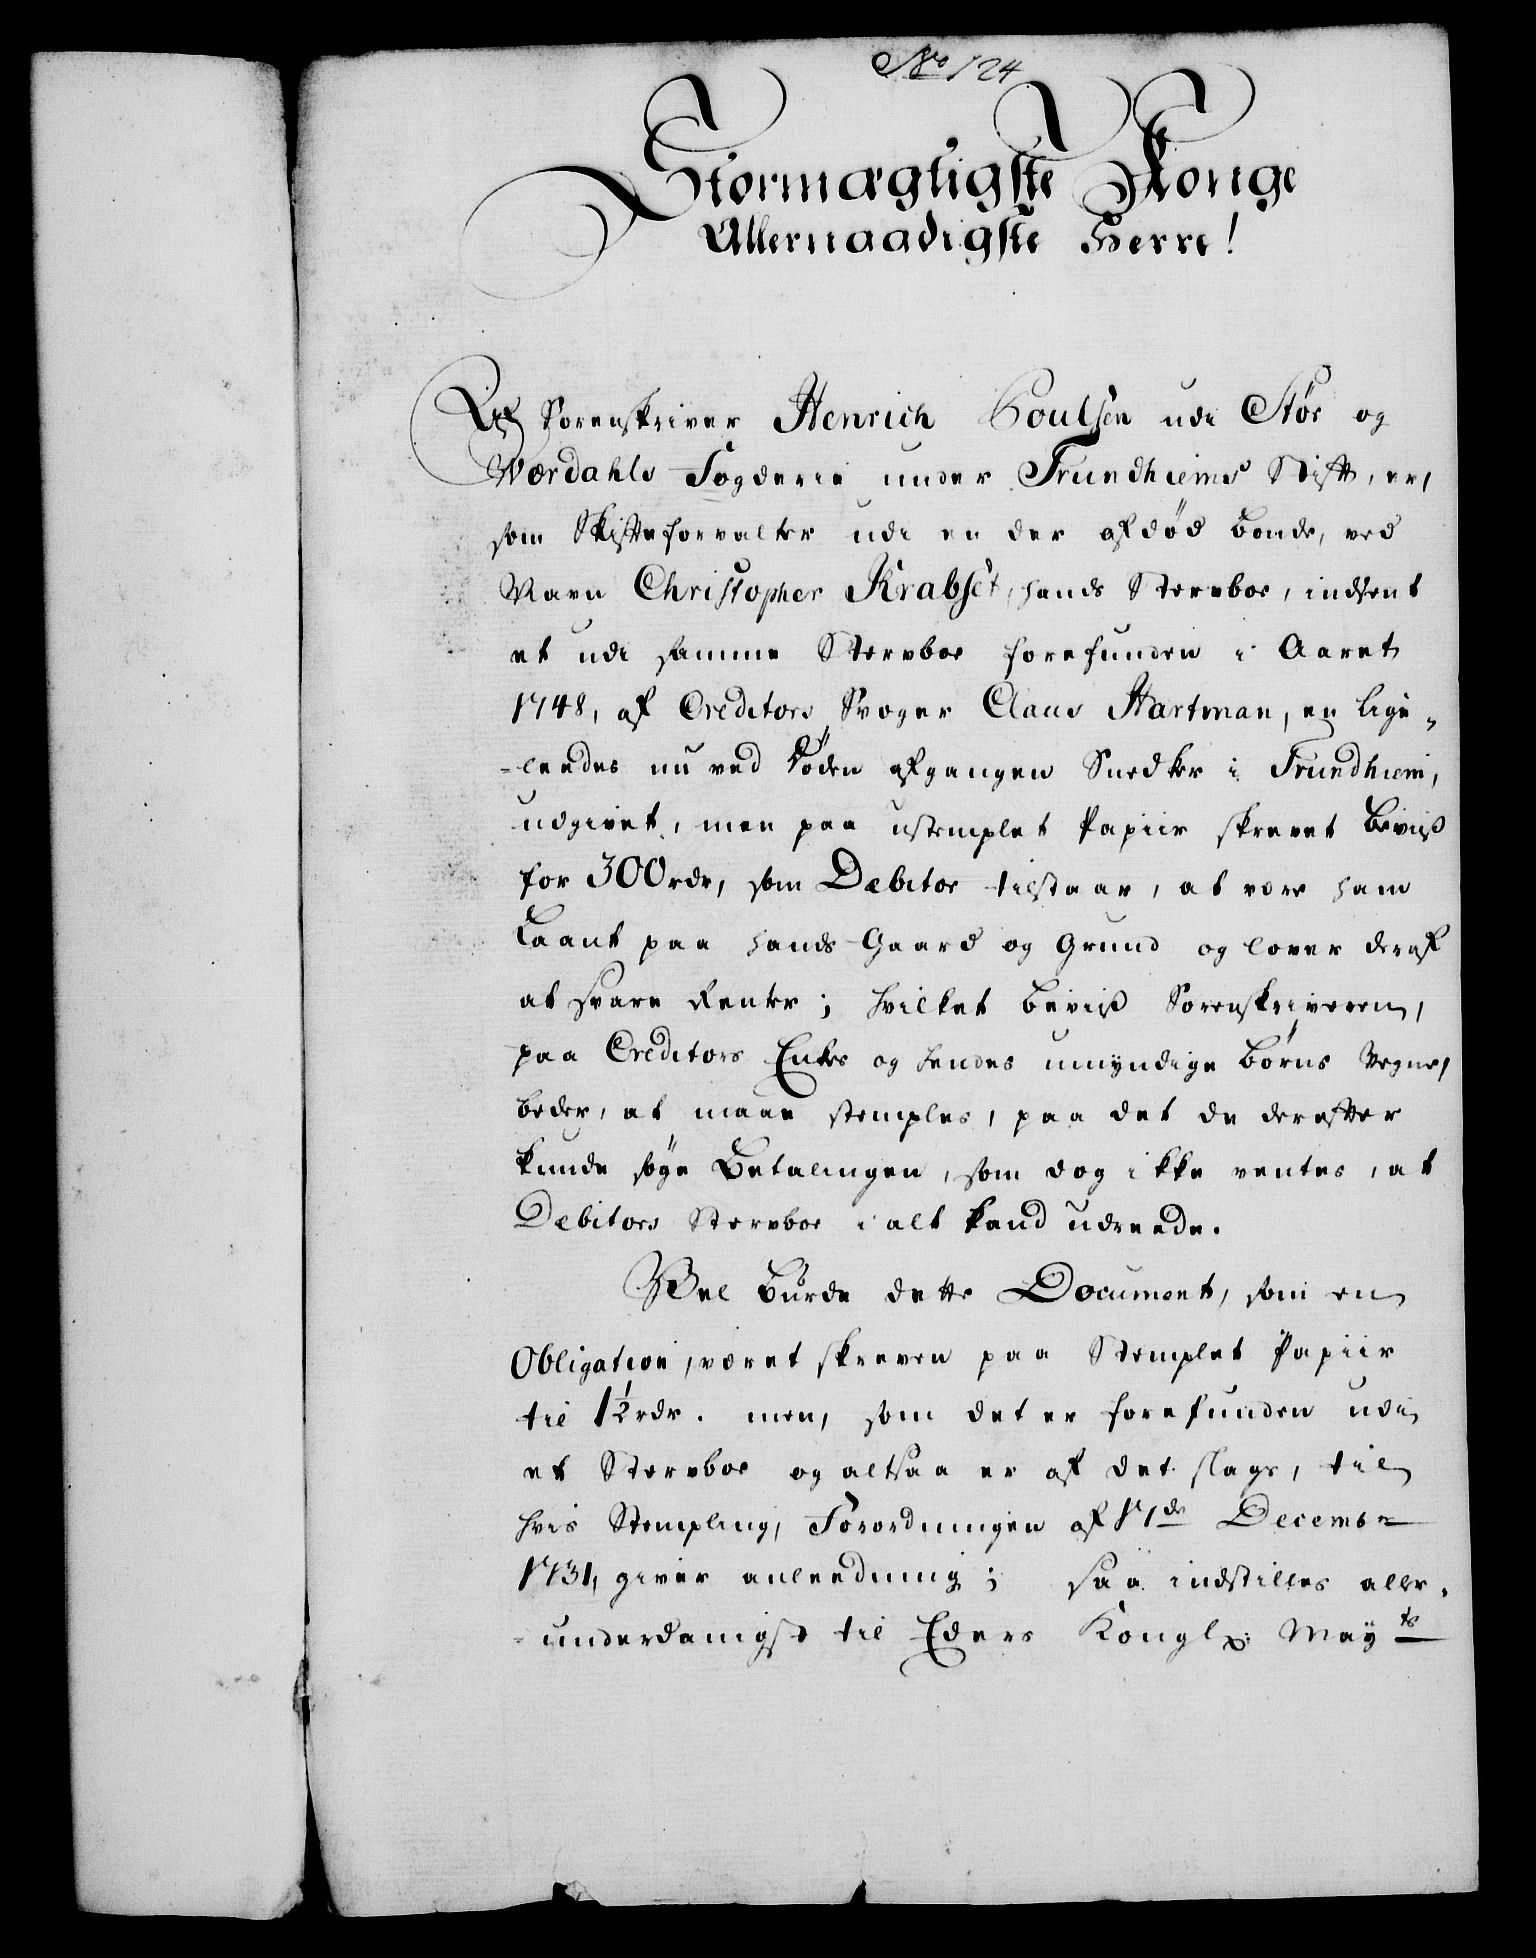 No 124
Stormægtigste Konge
Allernaadigste Herre!
Af Sorenskriver Henrich Houlsen udi Stör og
Værdahls Fogderie under Trundhiems Stift, er,
som Skifteforvalter udi en der afdöd bonde, ved
Navn Christopher Krabset, hands Stervboe, indsent
et udi samme Stervboe forefunden i Aaret
1748, af Creditors Svoger Claus Hartman, en lige„
-leedes nu ved Döden afgangen Snedker i Trundhiem,
udgivet, men paa ustemplet Papiir skrevet Beviis
for 300 rdr, som Debitor tilstaar, at være ham
Laant paa hands Gaard og Grund og lover deraf
at svare Renter; hvilket beviis Sorenskriveren,
paa Creditors Enkes og hendes umyndige börns vegne,
beder, at maae stemples, paa det de derefter
kunde söge Betalingen, som dog ikke ventes, at
Debitors Stervboe i alt kand udreede.
Vel burde dette Document, som en
Obligation, været skreven paa Stemplet Papiir
til 1½ rdr. men, som det er forefunden udi
et Stervboe og altsaa er af det slags, til
hvis Stempling, Forordningen af 17de Decembr
1731, giver anleedning; saa indstilles aller„
-underdanigst til Eders Kongl: Mayts